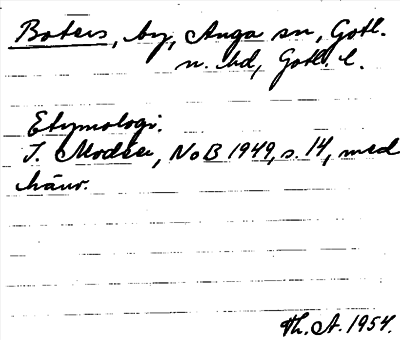 Boters, by, Anga sn, Gotl.
n. hd, Gotl. l.
Etymologi.
I. Modéer, NoB 1949, s. 14, med
hänv.
Th. A. 1954.